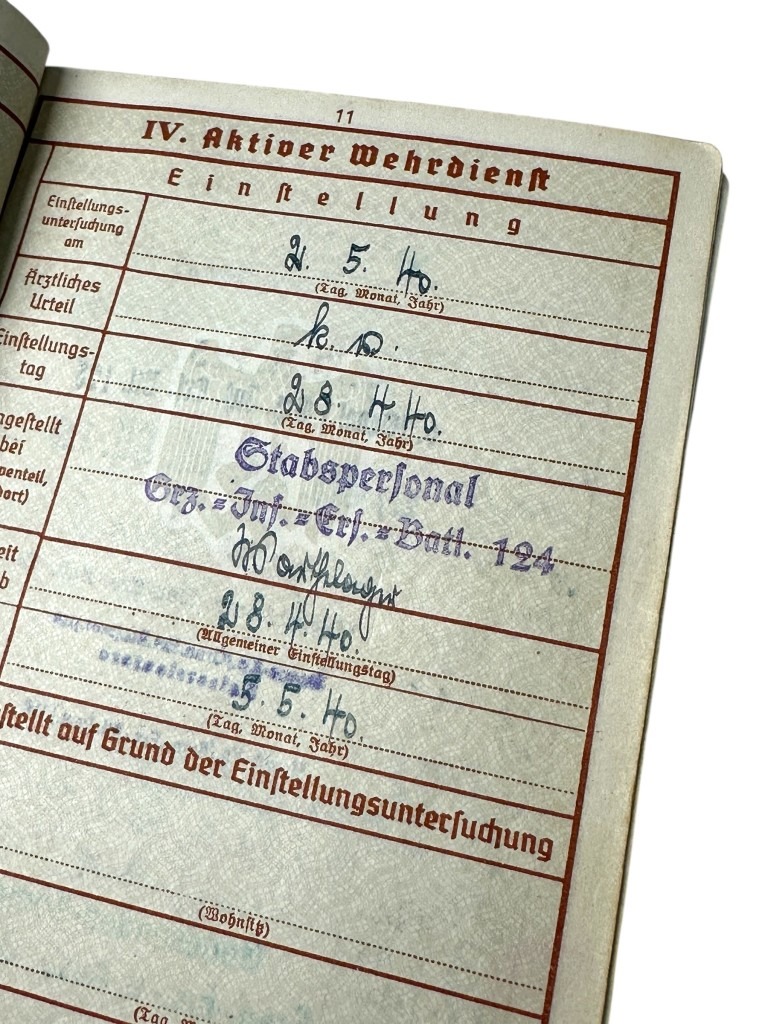 11
IV. Aktiver Wehrdienst
Einstellung
Einstellungs-
untersuchung
am
2. 5. 40.
(Tag, Monat, Jahr)
Ärztliches
Urteil
k. v.
Einstellungs-
tag
28. 4. 40.
(Tag, Monat, Jahr)
ngestellt
bei
penteil,
ort)
Stabspersonal
Grz.=Inf.=Ers.=Batl. 124
Warthelager
eit
b
28. 4. 40.
(Allgemeiner Einstellungstag)
5. 5. 40.
(Tag, Monat, Jahr)
stellt auf Grund der Einstellungsuntersuchung
(Wohnsitz)
(Tag,